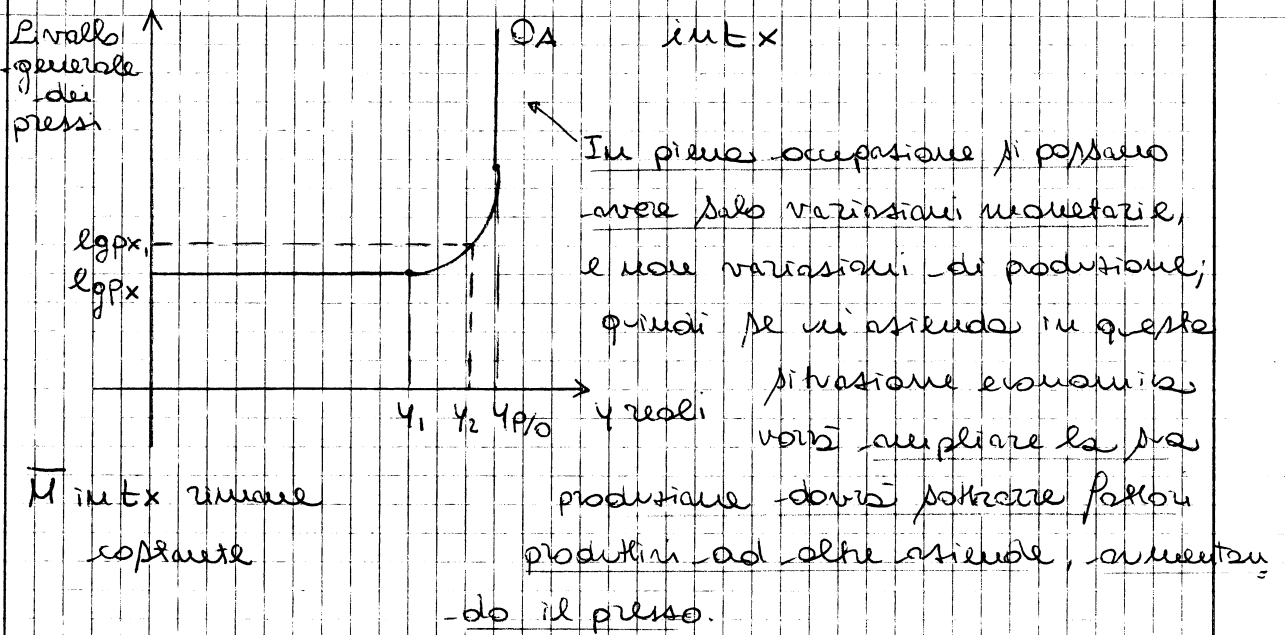 Livello
generale
dei
prezzi
OA
in tx
In piena occupazione si possano
avere solo variazioni monetarie,
e non variazioni di produzione;
quindi se un'azienda in questa
situazione economica
vorrà ampliare la sua
produzione dovrà sottrarre fattori
produttivi ad altre aziende, aumentan=
do il prezzo.
lgpx₁
lgpx
y₁ y₂ yp/o y reali
M̅ in tx rimane
costante